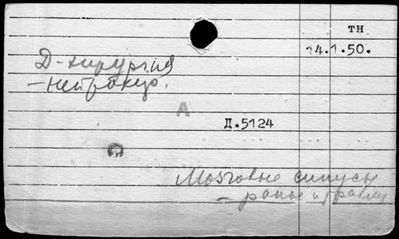 ТН
14.1.50.
Д-хирургия
-нейрохир.
А
Д.5124
Мозговые синусы
- раны и травмы